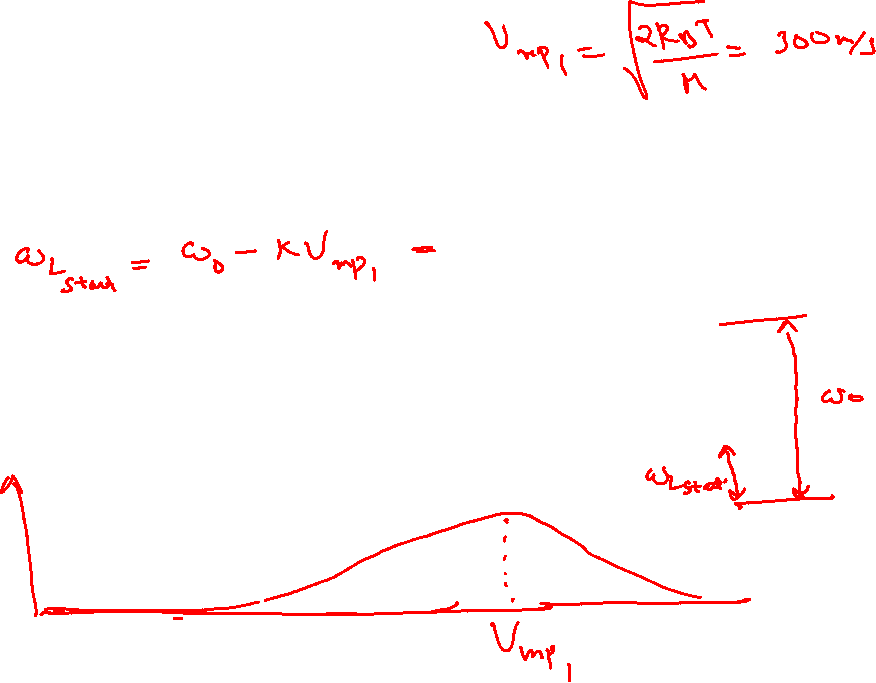 V_mp_1 = √(2k_BT/M) = 300 m/s
ω_L_start = ω_0 - kV_mp_1 -
ω_0
ω_L_start
V_mp_1